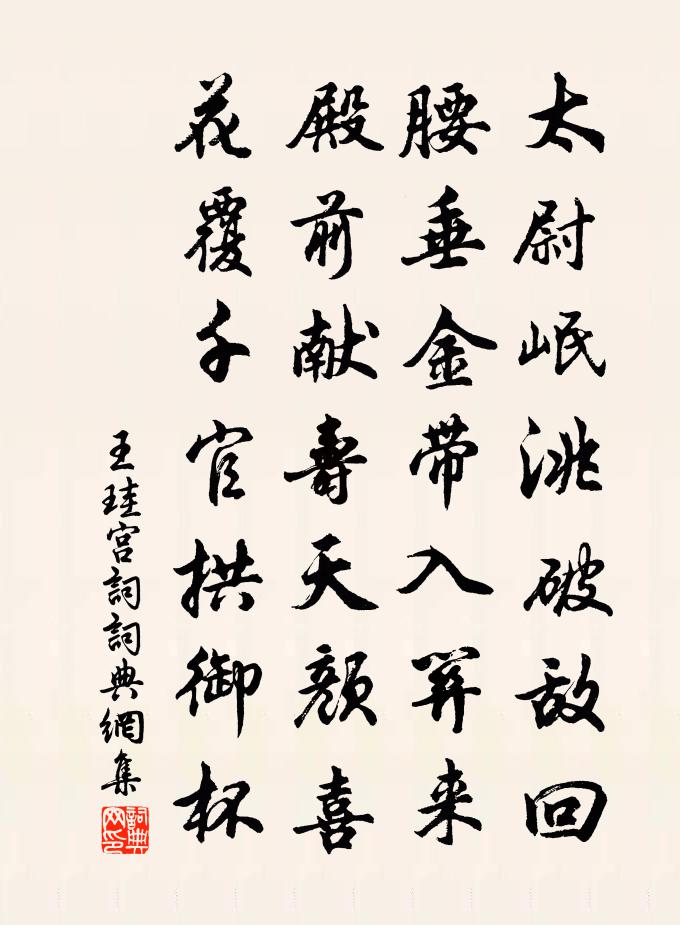 太尉岷洮破敌回
腰垂金带入関来
殿前献壽天顔喜
花覆千官拱御杯
王珪宫詞詞典網集
詞典网印